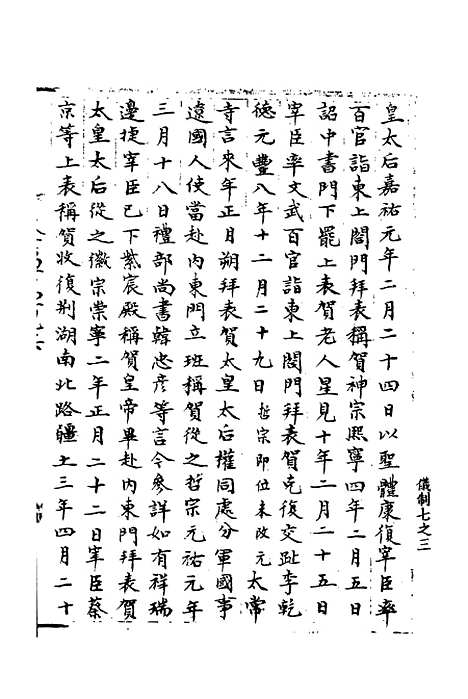 皇太后嘉祐元年二月二十四日以聖體康復宰臣率
百官詣東上閤門拜表稱賀神宗熙寧四年二月五日
詔中書門下罷上表賀老人星見十年二月二十五日
宰臣率文武百官詣東上閤門拜表賀克復交趾李乾
德元豐八年十二月二十九日哲宗即位未改元太常
寺言來年正月朔拜表賀太皇太后權同處分軍國事
遠國人使當赴內東門立班稱賀從之哲宗元祐元年
三月十八日禮部尚書韓忠彥等言今參詳如有祥瑞
邊捷宰臣已下紫宸殿稱賀皇帝畢赴內東門拜表賀
太皇太后從之徽宗崇寧二年正月二十二日宰臣蔡
京等上表稱賀收復荆湖南北路疆土三年四月二十
儀制七之三